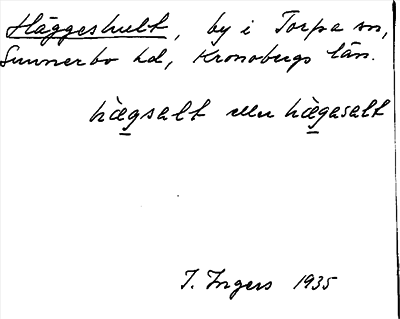 Häggeshult, by i Torpa sn,
Sunnerbo hd, Kronobergs län.
hàgsalt eller hàgasalt
I. Ingers 1935